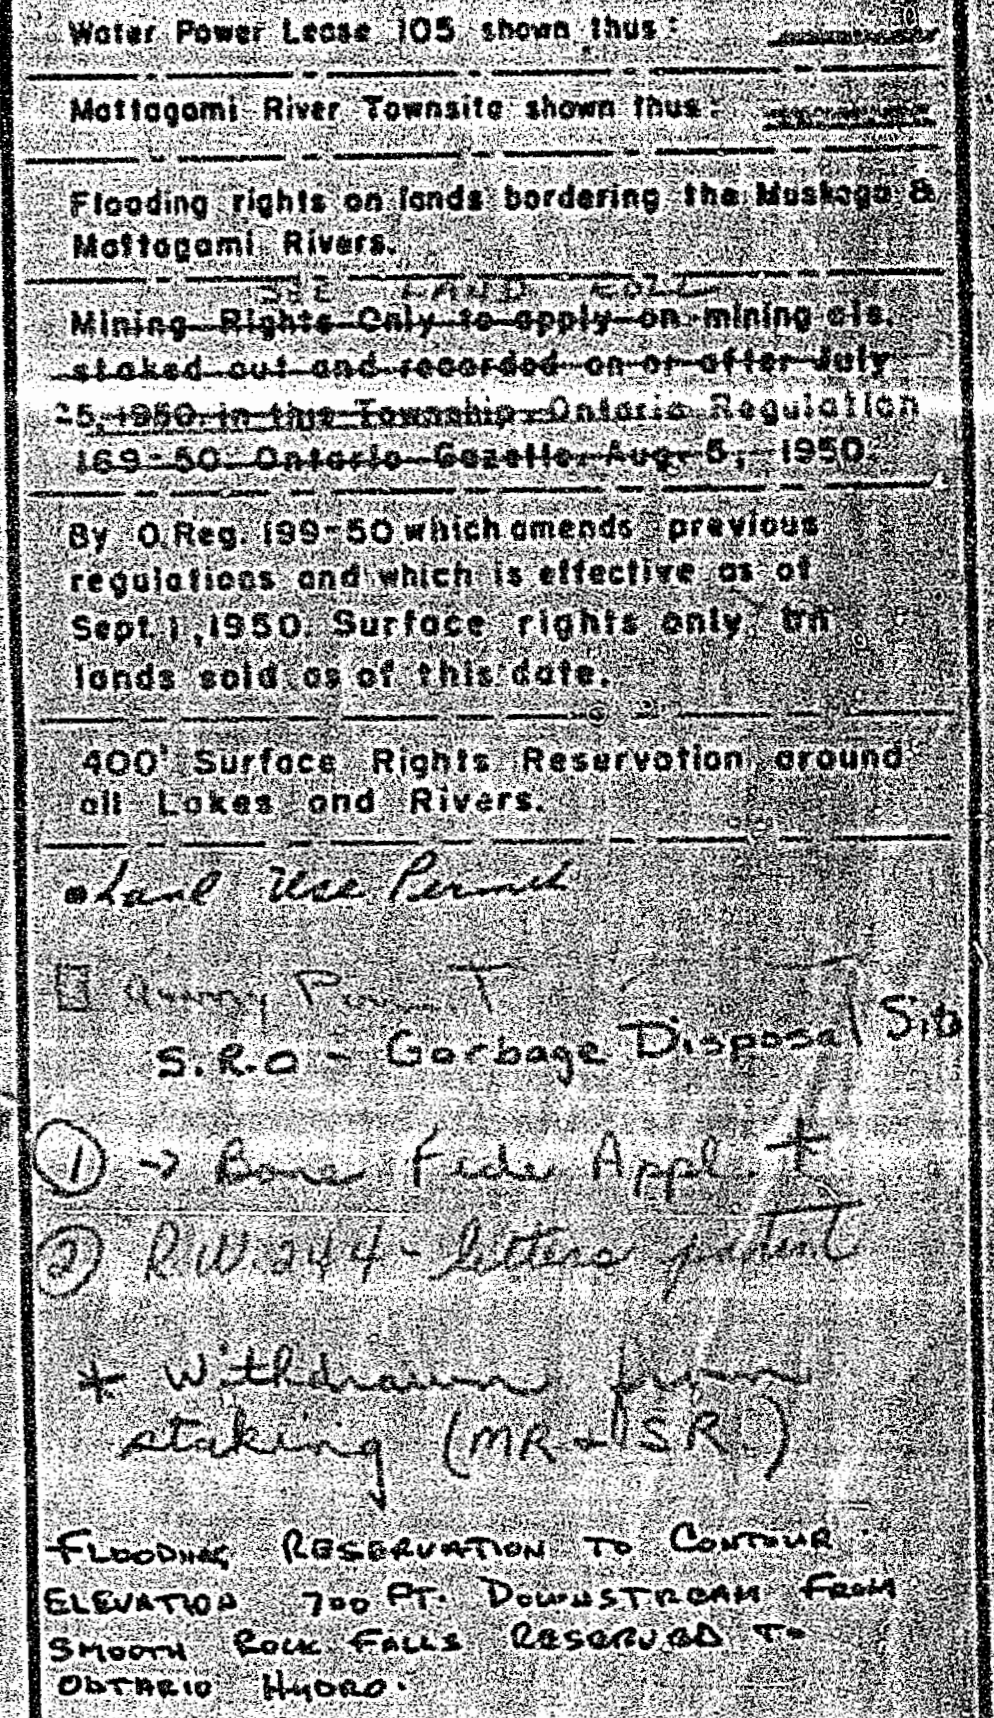 Water Power Lease 105 shown thus:
Mattagami River Townsite shown thus:
Flooding rights on lands bordering the Muskego &
Mattagami Rivers.
SEE LAND ROLL
Mining Rights Only to apply on mining cls.
staked out and recorded on or after July
25, 1950 in this Township. Ontario Regulation
169-50. Ontario Gazette. Aug. 5, 1950.
By O.Reg. 199-50 which amends previous
regulations and which is effective as of
Sept. 1, 1950. Surface rights only on
lands sold as of this date.
400' Surface Rights Reservation around
all Lakes and Rivers.
Land Use Permit
S.R.O - Garbage Disposal Site
① → Bona Fide Appl.
② R.W. 244 - letters patent
* Withdrawn from
staking (MR & SR.)
FLOODING RESERVATION TO CONTOUR
ELEVATION 700 FT. DOWNSTREAM FROM
SMOOTH ROCK FALLS RESERVED TO
ONTARIO HYDRO.